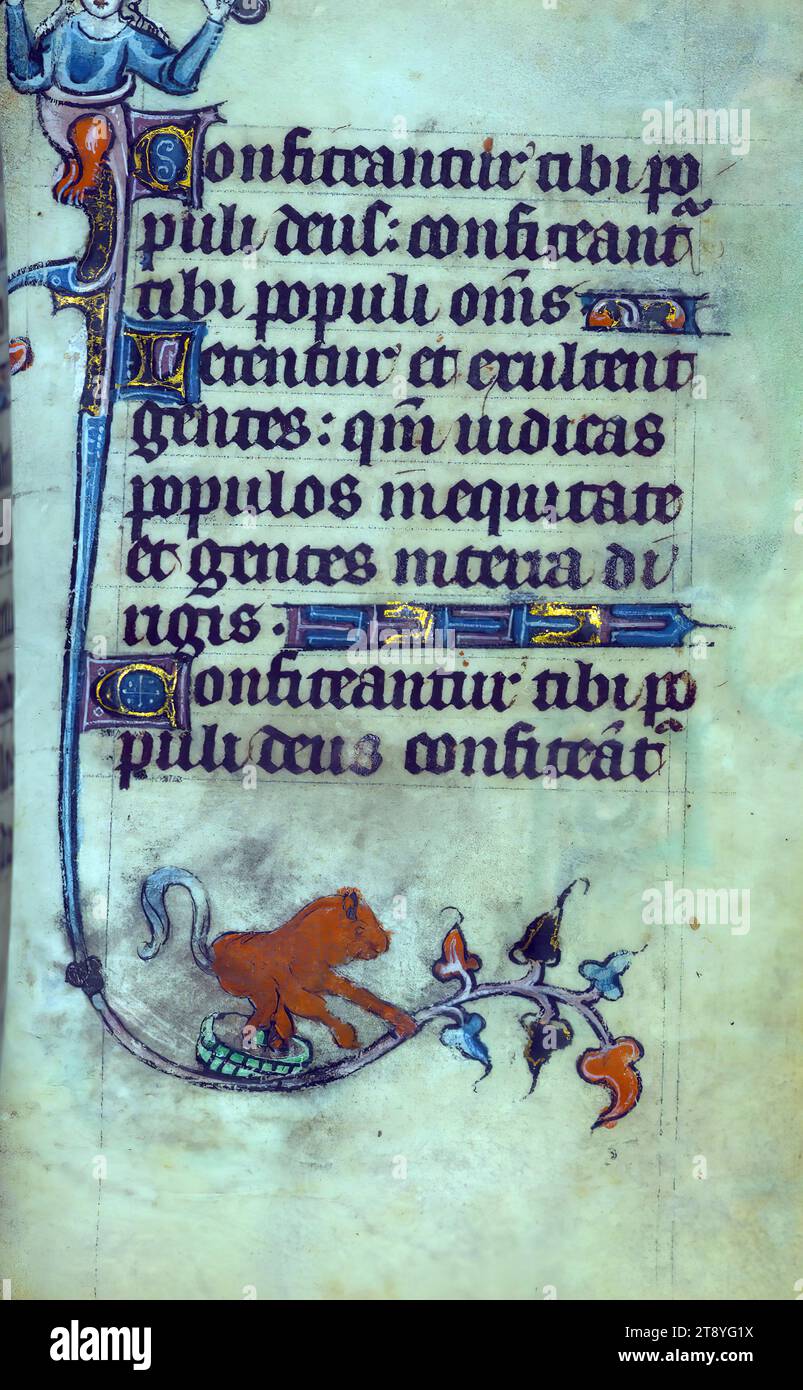 Confiteantur tibi po
puli deus: confiteant̃
tibi populi om̃s
Letentur et exultent
gentes: qm̃ iudicas
populos inequitate
et gentes interra di
rigis.
Confiteantur tibi po
puli deus confiteãt̃
alamy
alamy
a
a
alamy
Image ID: 2T8YG1X
www.alamy.com